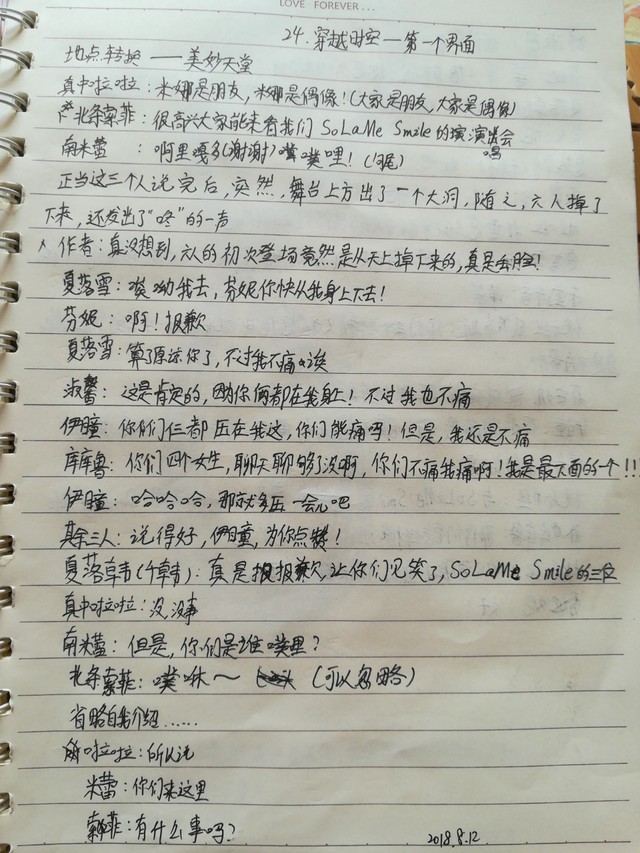 LOVE FOREVER...
24.穿越时空——第一个界面
地点转换——美妙天堂
真中啦啦:米娜是朋友,米娜是偶像!(大家是朋友,大家是偶像)
北条索菲:很高兴大家能来看我们SoLaMe Smile的演演唱会
南米蕾:啊里嘎多(谢谢)噗哩!(句尾)
正当这三个人说完后,突然,舞台上方出了一个大洞,随之,六人掉了
下来,还发出了“咚”的一声
作者:真没想到,六人的初次登场竟然是从天上掉下来的,真是丢脸!
夏落雪:哎呦我去,芬妮你快从我身上下去!
芬妮:啊!抱歉
夏落雪:算了原谅你了,不过我不痛诶
淑馨:这是肯定的,因为你俩都在我身上!不过我也不痛
伊瞳:你们仨都压在我这,你们能痛吗!但是,我还是不痛
库库鲁:你们四个女生,聊天聊够了没啊,你们不痛我痛啊!我是最下面的一个!!!
伊瞳:哈哈哈,那就多压一会儿吧
其余三人:说得好,伊瞳,为你点赞!
夏落韩(个韩):真是报报歉,让你们见笑了,SoLaMe Smile的三位
真中啦啦:没没事
南米蕾:但是,你们是谁噗里?
北条索菲:噗咻~(可以忽略)
省略自我介绍……
啦啦:所以说
米蕾:你们来这里
索菲:有什么事吗?
2018.8.12